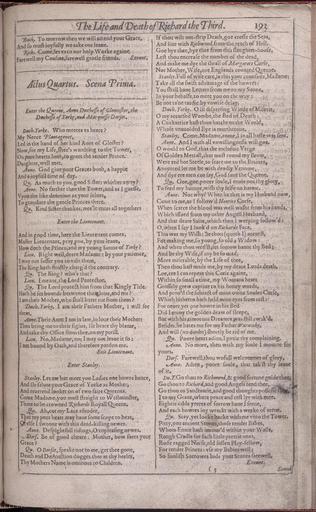 The Life and Death of Richard the Third. 193
Buck. To morrow then we will attend your Grace,
And so most joyfully we take our leaue.
Rich. Come, let vs to our holy Worke againe.
Farewell my Cousins, farewell gentle friends. Exeunt.
Actus Quartus. Scena Prima.
Enter the Queene, Anne Duchesse of Gloucester, the
Duchesse of Yorke, and Marquesse Dorset.
Duch. Yorke. Who meetes vs heere?
My Neece Plantagenet,
Led in the hand of her kind Aunt of Gloster?
Now, for my Life, shee's wandring to the Tower,
On pure hearts loue, to greet the tender Prince.
Daughter, well met.
Anne. God giue your Graces both, a happie
And a ioyfull time of day.
Qu. As much to you, good Sister: whither away?
Anne. No farther then the Tower, and as I guesse,
Vpon the like deuotion as your selues,
To gratulate the gentle Princes there.
Qu. Kind Sister thankes, wee'le enter all together:
Enter the Lieutenant.
And in good time, here the Lieutenant comes.
Master Lieutenant, pray you, by your leaue,
How doth the Prince, and my young Sonne of Yorke?
Lieu. Right well, deare Madame: by your patience,
I may not suffer you to visit them,
The King hath strictly charg'd the contrary.
Qu. The King? who's that?
Lieu. I meane, the Lord Protector.
Qu. The Lord protect him from that Kingly Title.
Hath he set bounds betweene their loue, and me?
I am their Mother, who shall barre me from them?
Duch. Yorke. I am their Fathers Mother, I will see
them.
Anne. Their Aunt I am in law, in loue their Mother:
Then bring me to their sights, Ile beare thy blame,
And take thy Office from thee, on my perill.
Lieu. No, Madame, no; I may not leaue it so:
I am bound by Oath, and therefore pardon me.
Exit Lieutenant.
Enter Stanley.
Stanley. Let me but meet you Ladies one howre hence,
And Ile salute your Grace of Yorke as Mother,
And reuerend looker on of two faire Queenes.
Come Madame, you must straight to Westminster,
There to be crowned Richards Royall Queene.
Qu. Ah, cut my Lace asunder,
That my pent heart may haue some scope to beat,
Or else I swoone with this dead-killing newes.
Anne. Despightfull tidings, O vnpleasing newes.
Dors. Be of good cheare: Mother, how fares your
Grace?
Qu. O Dorset, speake not to me, get thee gone,
Death and Destruction dogges thee at thy heeles,
Thy Mothers Name is ominous to Children.
If thou wilt out-strip Death, goe crosse the Seas,
And liue with Richmond, from the reach of Hell.
Goe hye thee, hye thee from this slaughter-house,
Lest thou encrease the number of the dead,
And make me dye the thrall of Margarets Curse,
Nor Mother, Wife, nor Englands counted Queene.
Stanley. Full of wise care, is this your counsaile, Madame:
Take all the swift aduantage of the howres:
You shall haue Letters from me to my Sonne,
In your behalfe, to meet you on the way:
Be not ta'ne tardie by vnwise delay.
Duch. Yorke. O ill dispersing Winde of Miserie,
O my accursed Wombe, the Bed of Death:
A Cockatrice hast thou hatcht to the World,
Whose vnauoided Eye is murtherous.
Stanley. Come, Madame, come, I in all haste was sent.
Anne. And I with all vnwillingnesse will goe.
O would to God, that the inclusiue Verge
Of Golden Mettall, that must round my Brow,
Were red hot Steele, to seare me to the Braines,
Anoynted let me be with deadly Venome,
And dye ere men can say, God saue the Queene.
Qu. Goe, goe, poore soule, I enuie not thy glory,
To feed my humor, wish thy selfe no harme.
Anne. No: why? When he that is my Husband now,
Came to me, as I follow'd Henries Corse,
When scarce the blood was well washt from his hands,
Which issued from my other Angell Husband,
And that deare Saint, which then I weeping follow'd:
O, when I say I look'd on Richards Face,
This was my Wish: Be thou (quoth I) accurst,
For making me, so young, so old a Widow:
And when thou wed'st, let sorrow haunt thy Bed;
And be thy Wife, if any be so mad,
More miserable, by the Life of thee,
Then thou hast made me, by my deare Lords death.
Loe, ere I can repeat this Curse againe,
Within so small a time, my Womans heart
Grossely grew captiue to his honey words,
And prou'd the subiect of mine owne Soules Curse,
Which hitherto hath held mine eyes from rest:
For neuer yet one howre in his Bed
Did I enioy the golden deaw of sleepe,
But with his timorous Dreames was still awak'd.
Besides, he hates me for my Father Warwicke,
And will (no doubt) shortly be rid of me.
Qu. Poore heart adieu, I pittie thy complaining.
Anne. No more, then with my soule I mourne for
yours.
Dors. Farewell, thou wofull welcommer of glory.
Anne. Adieu, poore soule, that tak'st thy leaue
of it.
Du. Y. Go thou to Richmond, & good fortune guide thee,
Go thou to Richard, and good Angels tend thee,
Go thou to Sanctuarie, and good thoughts possesse thee,
I to my Graue, where peace and rest lye with mee.
Eightie odde yeeres of sorrow haue I seene,
And each howres ioy wrackt with a weeke of teene.
Qu. Stay, yet looke backe with me vnto the Tower.
Pitty, you ancient Stones, those tender Babes,
Whom Enuie hath immur'd within your Walls,
Rough Cradle for such little prettie ones,
Rude ragged Nurse, old sullen Play-fellow,
For tender Princes: vse my Babies well;
So foolish Sorrowes bids your Stones farewell.
Exeunt.